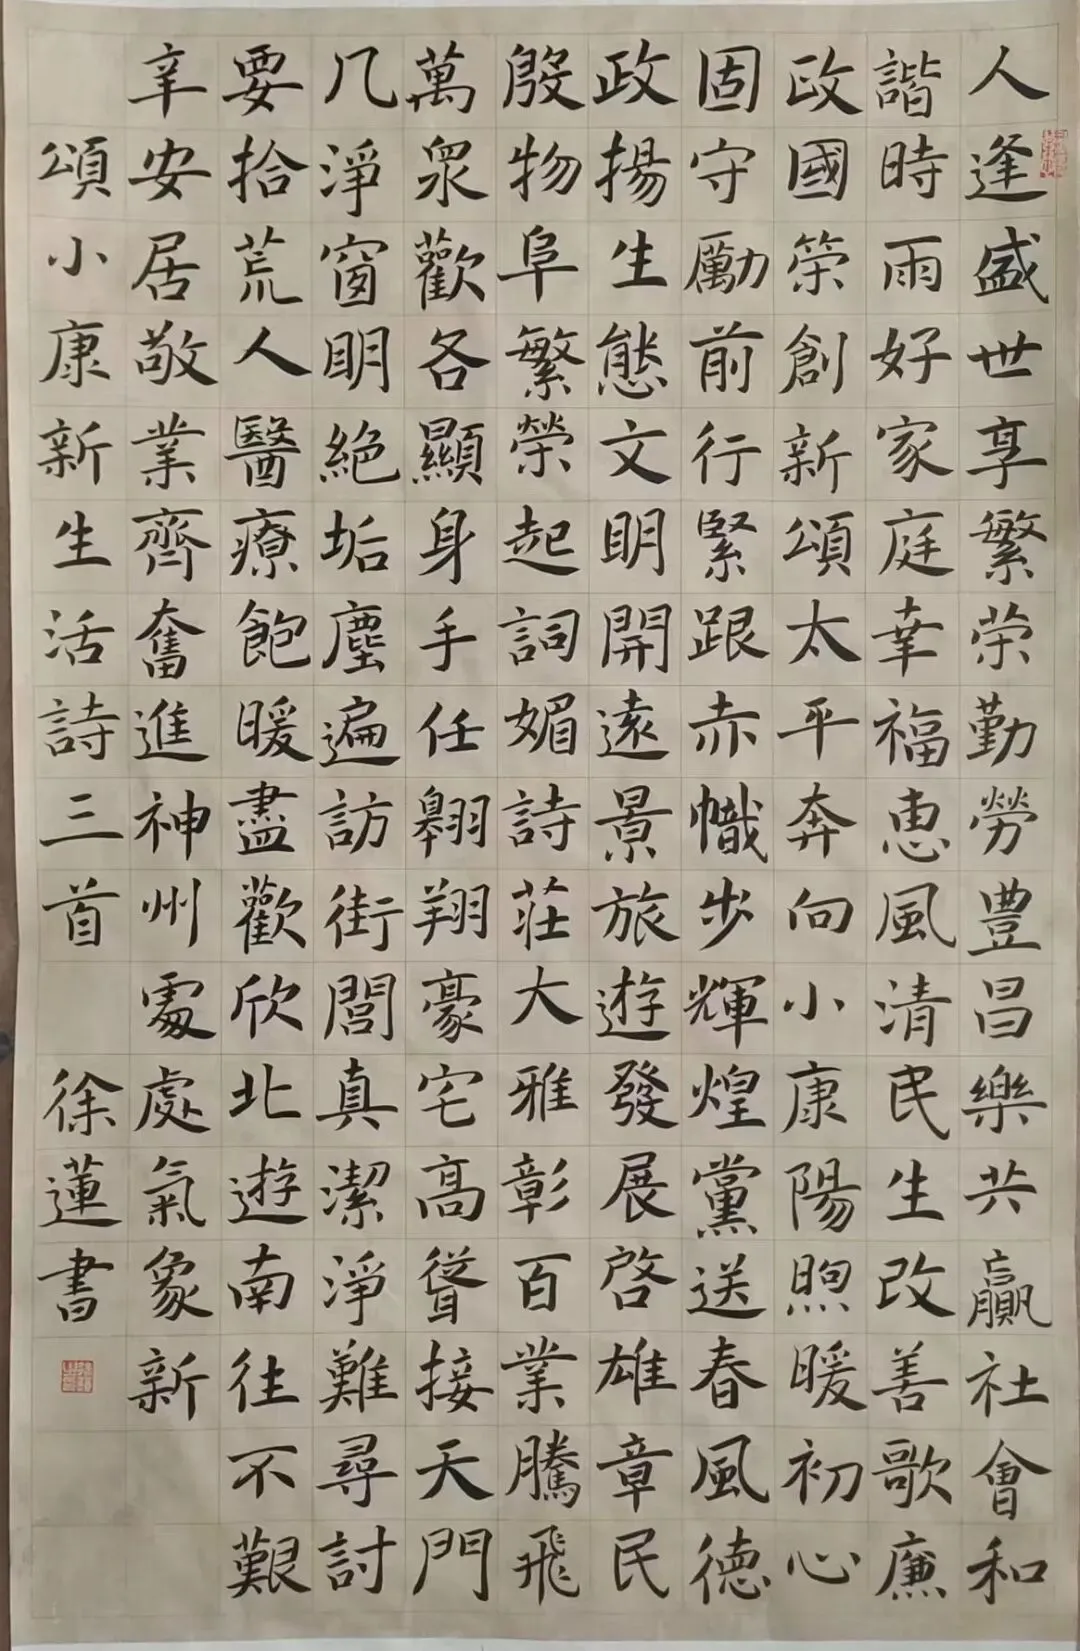 人逢盛世享繁荣勤勞豊昌樂共贏社會和
諧時雨好家庭幸福恵風清民生改善歌廉
政國榮創新頌太平奔向小康陽煦暖初心
固守勵前行緊跟赤幟步輝煌黨送春風德
政揚生態文明開遠景旅遊發展啓雄章民
殷物阜繁榮起詞媚詩莊大雅彰百業騰飛
萬衆歡各顯身手任翱翔豪宅高聳接天門
几淨窗明絕垢塵遍訪街閭真潔淨難尋討
要拾荒人醫療飽暖盡歡欣北遊南往不艱
辛安居敬業齊奮進神州處處氣象新
頌小康新生活詩三首
徐蓮書